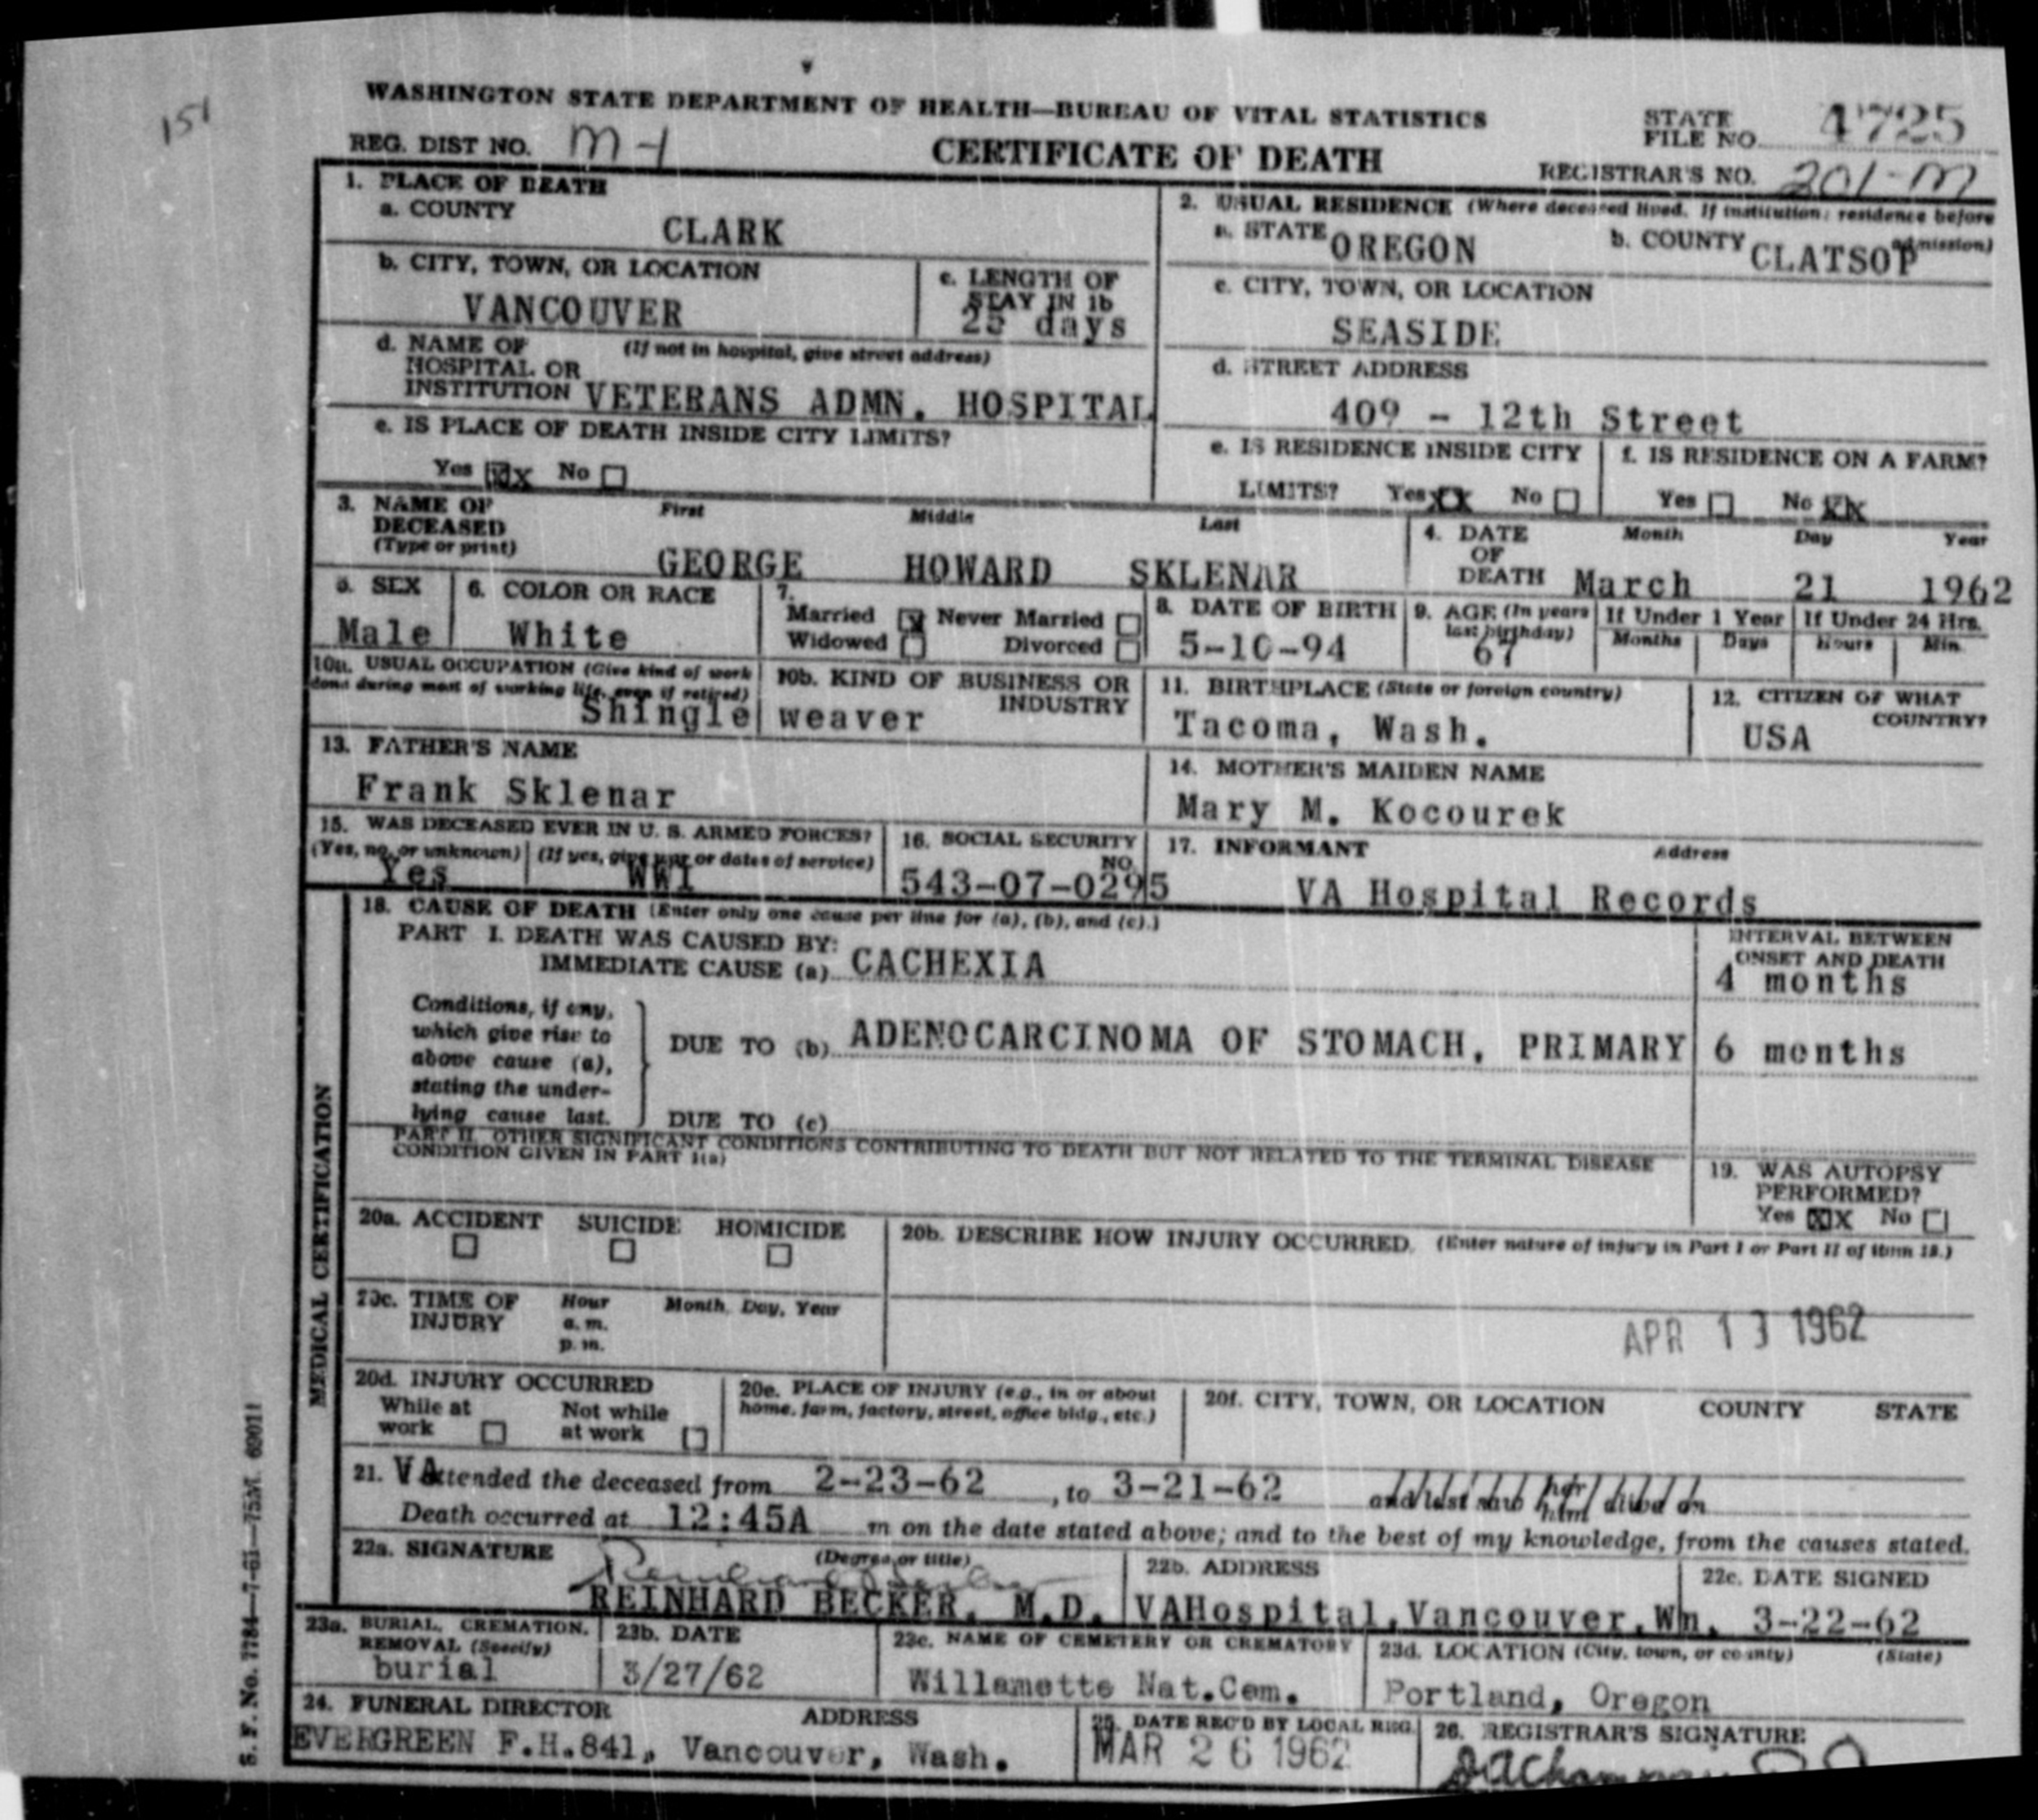 151
WASHINGTON STATE DEPARTMENT OF HEALTH—BUREAU OF VITAL STATISTICS
STATE FILE NO. 4725
REG. DIST NO. M-1
CERTIFICATE OF DEATH
REGISTRAR'S NO. 201-M
1. PLACE OF DEATH
a. COUNTY
CLARK
2. USUAL RESIDENCE (Where deceased lived. If institution: residence before admission)
a. STATE OREGON
b. COUNTY CLATSOP
b. CITY, TOWN, OR LOCATION
VANCOUVER
c. LENGTH OF STAY IN 1b
25 days
c. CITY, TOWN, OR LOCATION
SEASIDE
d. NAME OF HOSPITAL OR INSTITUTION (If not in hospital, give street address)
VETERANS ADMN. HOSPITAL
d. STREET ADDRESS
409 - 12th Street
e. IS PLACE OF DEATH INSIDE CITY LIMITS?
Yes XX No
e. IS RESIDENCE INSIDE CITY LIMITS? Yes XX No
f. IS RESIDENCE ON A FARM?
Yes No XX
3. NAME OF DECEASED (Type or print)
First Middle Last
GEORGE HOWARD SKLENAR
4. DATE OF DEATH
Month Day Year
March 21 1962
5. SEX
Male
6. COLOR OR RACE
White
7.
Married X Never Married
Widowed Divorced
8. DATE OF BIRTH
5-10-94
9. AGE (In years last birthday)
67
If Under 1 Year
Months Days
If Under 24 Hrs.
Hours Min.
10a. USUAL OCCUPATION (Give kind of work done during most of working life, even if retired)
10b. KIND OF BUSINESS OR INDUSTRY
Shingle weaver
11. BIRTHPLACE (State or foreign country)
Tacoma, Wash.
12. CITIZEN OF WHAT COUNTRY?
USA
13. FATHER'S NAME
Frank Sklenar
14. MOTHER'S MAIDEN NAME
Mary M. Kocourek
15. WAS DECEASED EVER IN U. S. ARMED FORCES?
(Yes, no, or unknown) (If yes, give war or dates of service)
Yes WWI
16. SOCIAL SECURITY NO.
543-07-0295
17. INFORMANT Address
VA Hospital Records
MEDICAL CERTIFICATION
18. CAUSE OF DEATH (Enter only one cause per line for (a), (b), and (c).)
PART I. DEATH WAS CAUSED BY:
IMMEDIATE CAUSE (a) CACHEXIA
INTERVAL BETWEEN ONSET AND DEATH
4 months
Conditions, if any, which give rise to above cause (a), stating the underlying cause last.
DUE TO (b) ADENOCARCINOMA OF STOMACH, PRIMARY
6 months
DUE TO (c)
PART II. OTHER SIGNIFICANT CONDITIONS CONTRIBUTING TO DEATH BUT NOT RELATED TO THE TERMINAL DISEASE CONDITION GIVEN IN PART I(a)
19. WAS AUTOPSY PERFORMED?
Yes XX No
20a. ACCIDENT SUICIDE HOMICIDE
20b. DESCRIBE HOW INJURY OCCURRED. (Enter nature of injury in Part I or Part II of item 18.)
20c. TIME OF INJURY
Hour a.m. p.m.
Month, Day, Year
APR 13 1962
20d. INJURY OCCURRED
While at work
Not while at work
20e. PLACE OF INJURY (e.g., in or about home, farm, factory, street, office bldg., etc.)
20f. CITY, TOWN, OR LOCATION COUNTY STATE
21. VA attended the deceased from 2-23-62, to 3-21-62 and last saw her him alive on
Death occurred at 12:45A m on the date stated above; and to the best of my knowledge, from the causes stated.
22a. SIGNATURE (Degree or title)
Reinhard Becker
REINHARD BECKER, M.D.
22b. ADDRESS
VAHospital,Vancouver,Wn.
22c. DATE SIGNED
3-22-62
23a. BURIAL, CREMATION, REMOVAL (Specify)
burial
23b. DATE
3/27/62
23c. NAME OF CEMETERY OR CREMATORY
Willamette Nat.Cem.
23d. LOCATION (City, town, or county) (State)
Portland, Oregon
24. FUNERAL DIRECTOR ADDRESS
EVERGREEN F.H.841, Vancouver, Wash.
25. DATE REC'D BY LOCAL REG.
MAR 26 1962
26. REGISTRAR'S SIGNATURE
S. F. No. 7784—7-61—75M. 69011